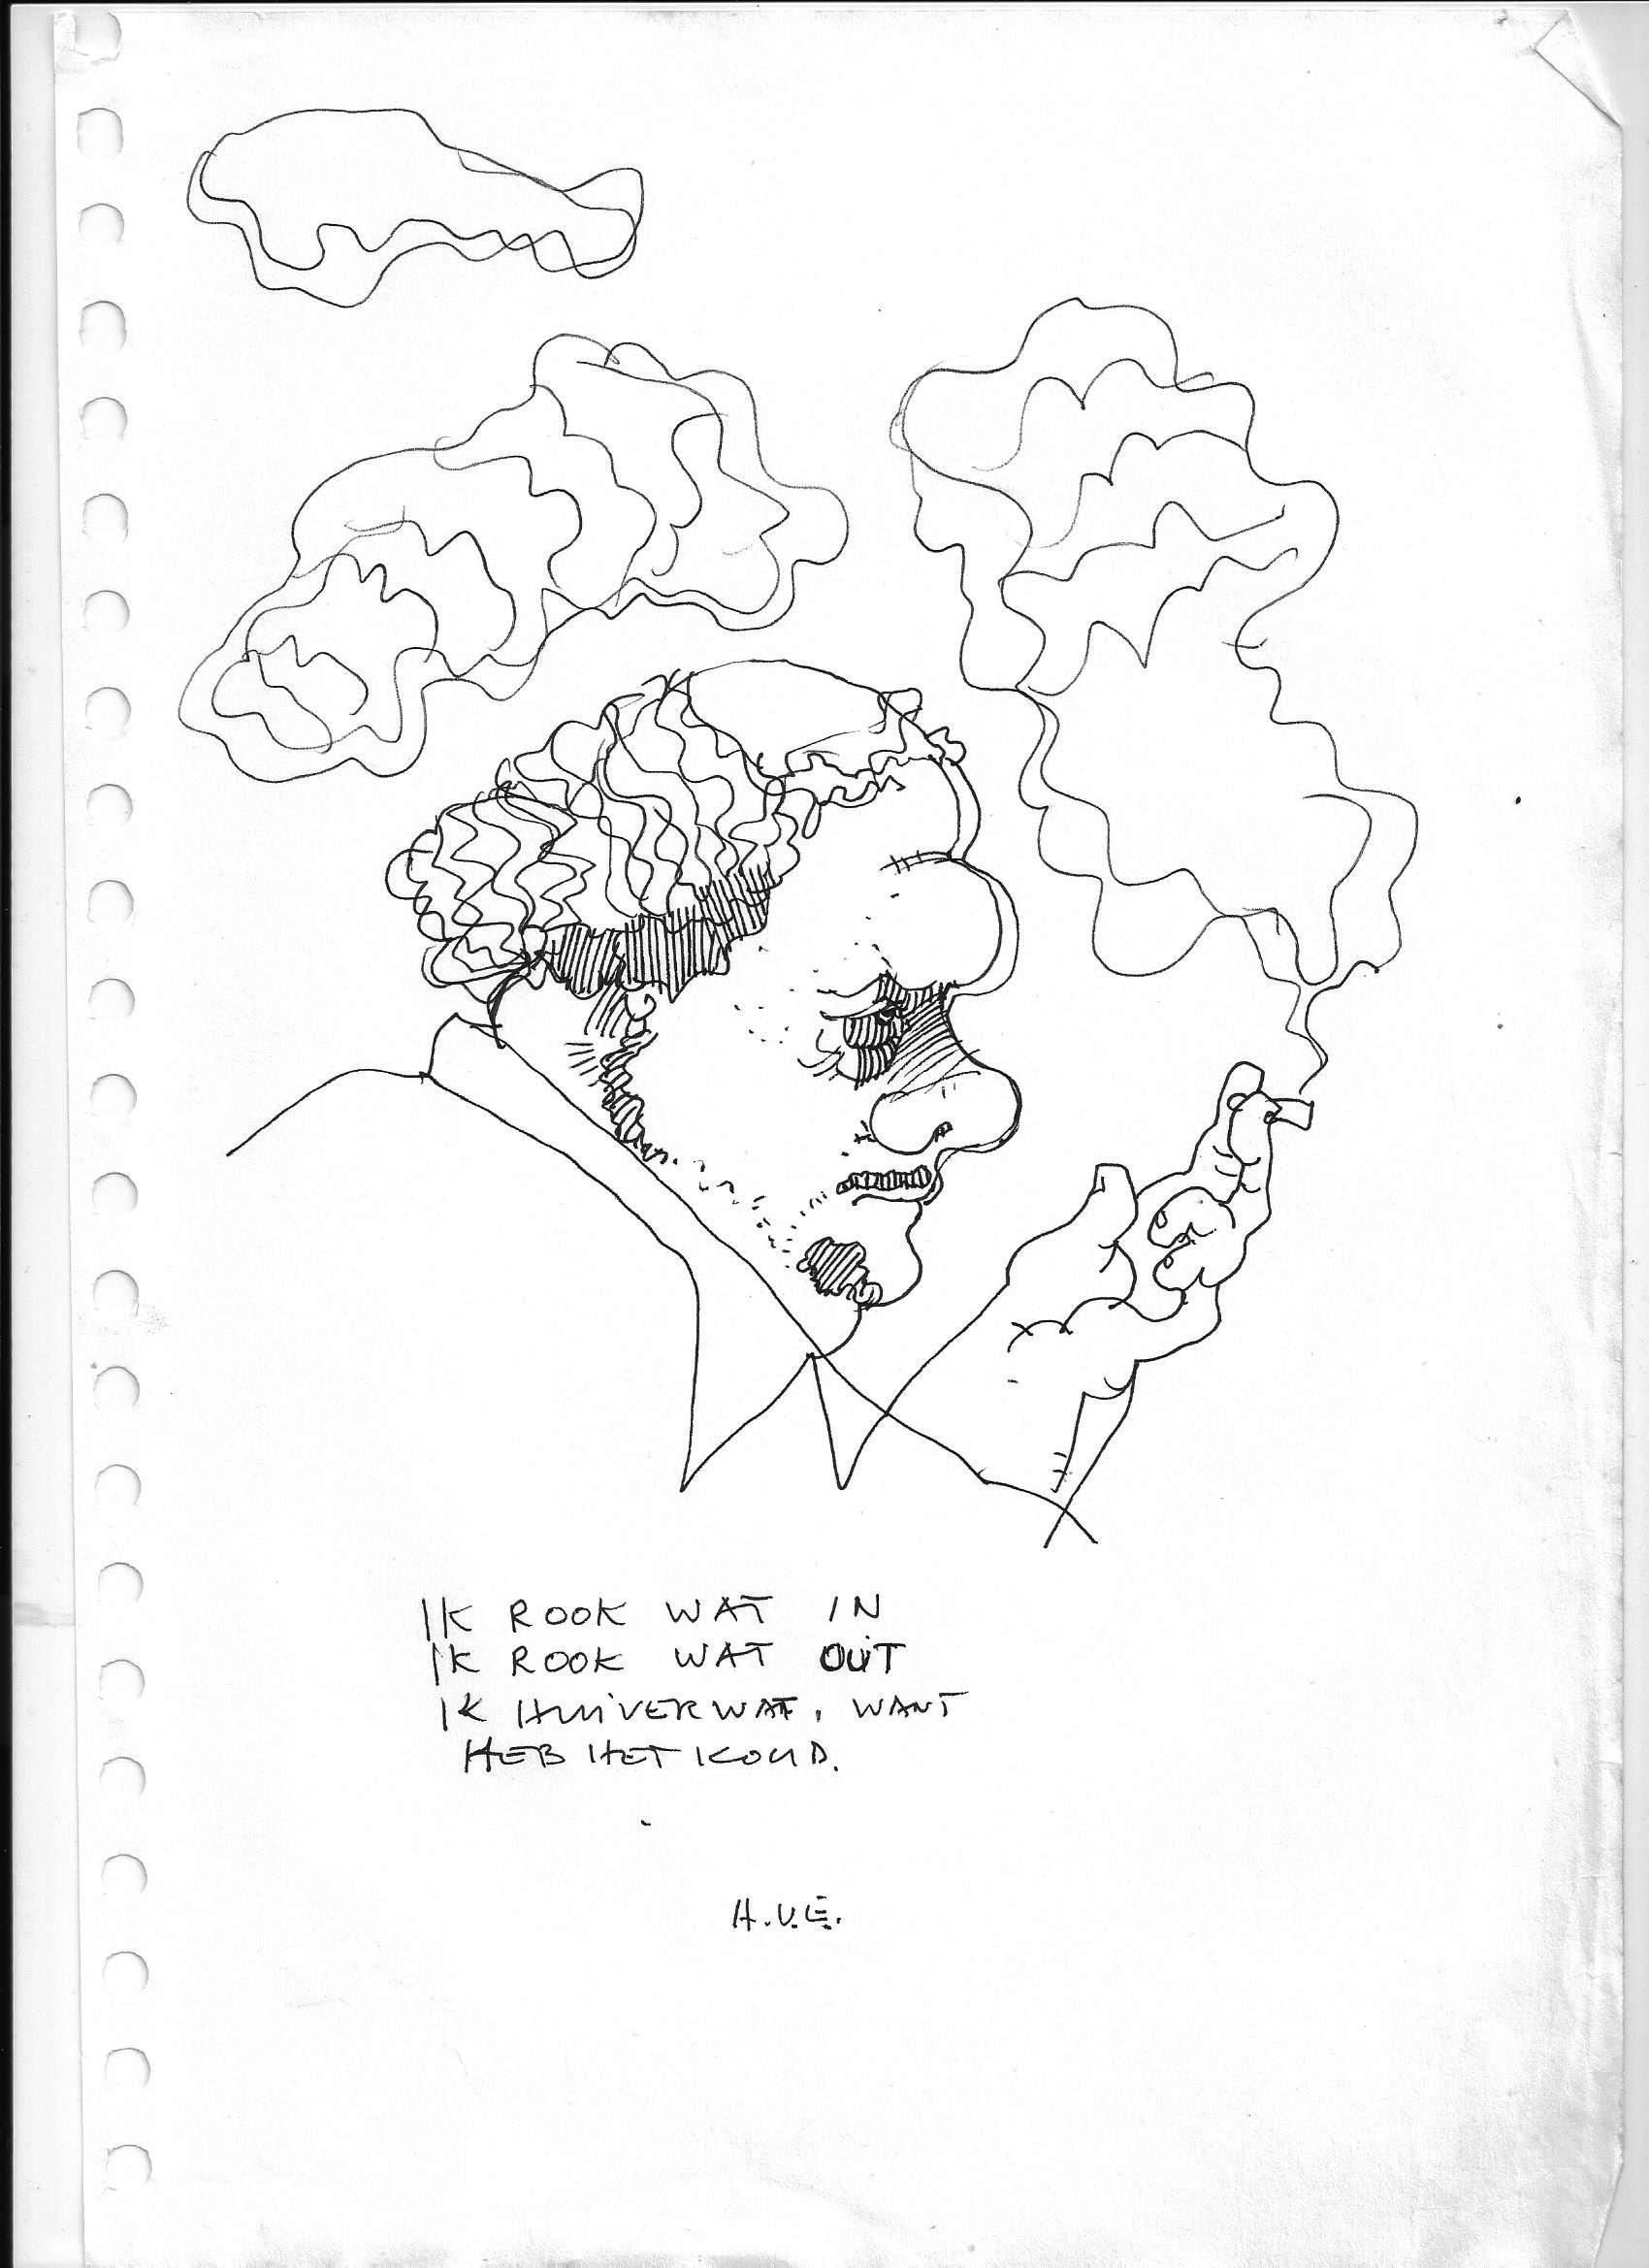 IK ROOK WAT IN
IK ROOK WAT OUT
IK HUIVER WAT, WANT
HEB HET KOUD.
H.V.E.